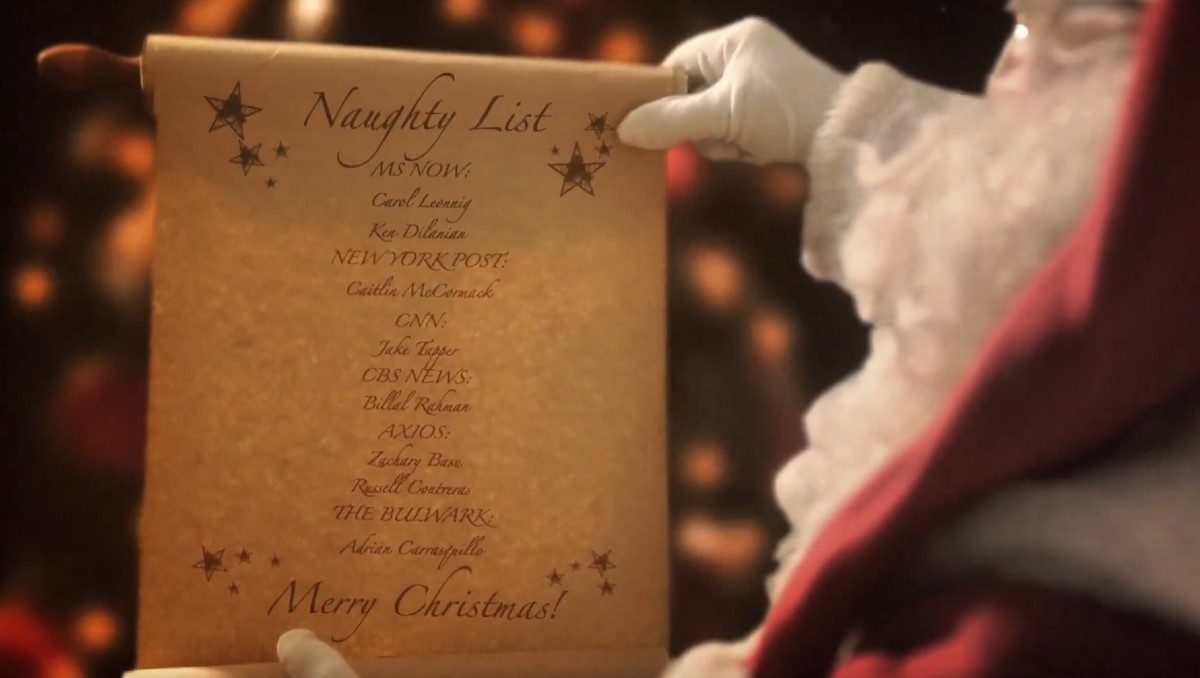 Naughty List
MS NOW:
Carol Leonnig
Ken Dilanian
NEW YORK POST:
Caitlin McCormack
CNN:
Jake Tapper
CBS NEWS:
Billal Rahman
AXIOS:
Zachary Basu
Russell Contreras
THE BULWARK:
Adrian Carrasquillo
Merry Christmas!